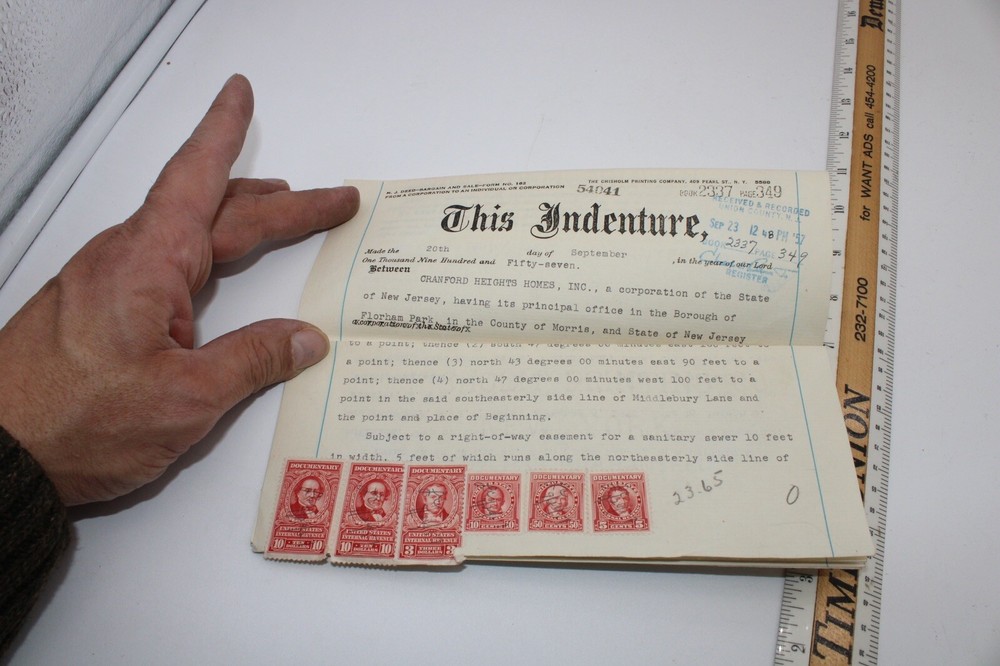 N. J. DEED-BARGAIN AND SALE-FORM No. 193
FROM A CORPORATION TO AN INDIVIDUAL OR CORPORATION
THE CHISHOLM PRINTING COMPANY, 409 PEARL ST., N. Y.
54041
BOOK 2337 PAGE 349
RECEIVED & RECORDED
UNION COUNTY, N. J.
SEP 23 12 48 PM '57
BOOK 2337 PAGE 349
REGISTER
This Indenture,
Made the 20th day of September
One Thousand Nine Hundred and Fifty-seven. , in the year of our Lord
Between
CRANFORD HEIGHTS HOMES, INC., a corporation of the State
of New Jersey, having its principal office in the Borough of
Florham Park, in the County of Morris, and State of New Jersey
a corporation of the State of
to a point; thence (2) south 47 degrees 00 minutes east 100 feet to
a point; thence (3) north 43 degrees 00 minutes east 90 feet to a
point; thence (4) north 47 degrees 00 minutes west 100 feet to a
point in the said southeasterly side line of Middlebury Lane and
the point and place of Beginning.
Subject to a right-of-way easement for a sanitary sewer 10 feet
in width, 5 feet of which runs along the northeasterly side line of
DOCUMENTARY
UNITED STATES
INTERNAL REVENUE
10 TEN 10
DOLLARS
DOCUMENTARY
UNITED STATES
INTERNAL REVENUE
10 TEN 10
DOLLARS
DOCUMENTARY
UNITED STATES
INTERNAL REVENUE
3 THREE 3
DOLLARS
DOCUMENTARY
10 CENTS 10
DOCUMENTARY
50 CENTS 50
DOCUMENTARY
5 CENTS 5
23.65
0
for WANT ADS call 454-4200
232-7100
16
15
14
13
12
11
10
9
2